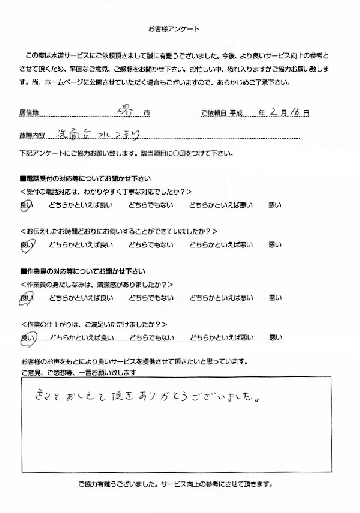 お客様アンケート
この度は水道サービスにご依頼頂きまして誠に有難うございました。今後、より良いサービス向上の参考と
させて頂くため、率直なご意見、ご感想をお聞かせ下さい。お忙しい中、恐れ入りますがご協力お願い致しま
す。尚、ホームページに公開させていただく場合もございますので、あらかじめご了承下さい。
居住地 堺 市 ご依頼日 平成 年 2 月 16 日
故障内容 洗面台 水つまり
下記アンケートにご協力お願い致します。該当項目に〇印をつけて下さい。
■電話受付の対応等についてお聞かせ下さい
＜受付の電話対応は、わかりやすく丁寧な対応でしたか？＞
良い どちらかといえば良い どちらでもない どちらかといえば悪い 悪い
＜お伝えしたお時間どおりにお伺いすることができていましたか？＞
良い どちらかといえば良い どちらでもない どちらかといえば悪い 悪い
■作業員の対応等についてお聞かせ下さい
＜作業員の身だしなみは、清潔感がありましたか？＞
良い どちらかといえば良い どちらでもない どちらかといえば悪い 悪い
＜作業の仕上がりは、ご満足いただけましたか？＞
良い どちらかといえば良い どちらでもない どちらかといえば悪い 悪い
お客様のお声をもとにより良いサービスを提供させて頂きたいと思っています。
ご意見、ご感想等、一言お願い致します
おしえて頂きありがとうございました。
ご協力有難うございました。サービス向上の参考にさせて頂きます。